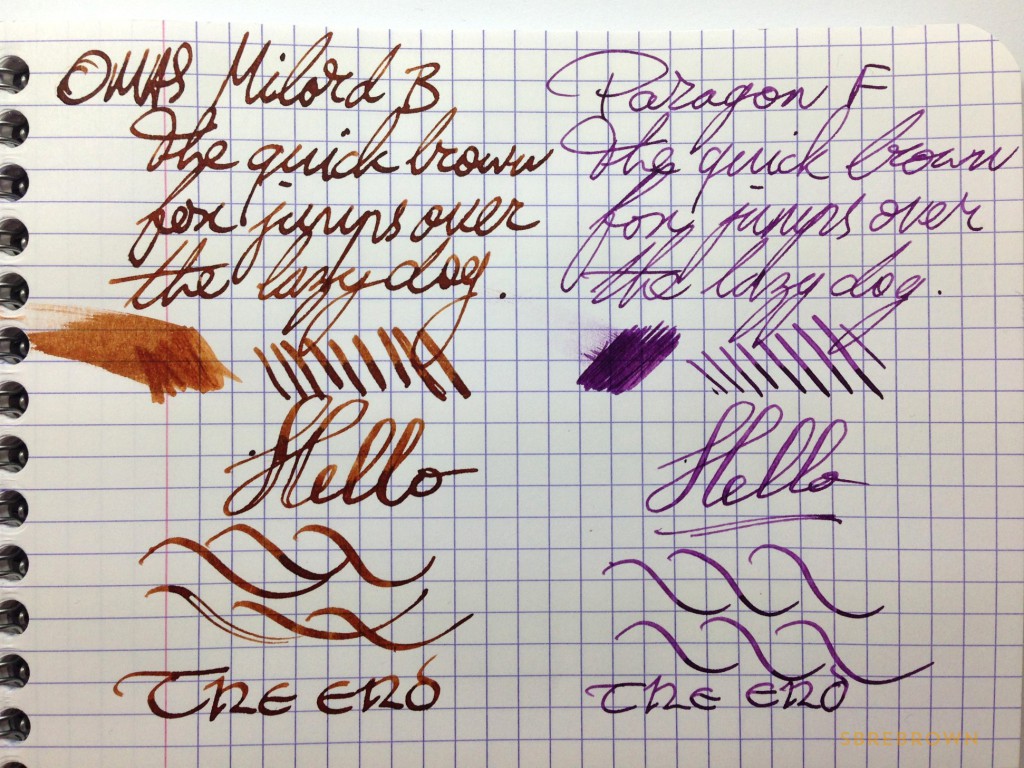 OMAS Milord B
The quick brown
fox jumps over
the lazy dog.
Hello
The End
Paragon F
The quick brown
fox jumps over
the lazy dog.
Hello
The End
SBREBROWN